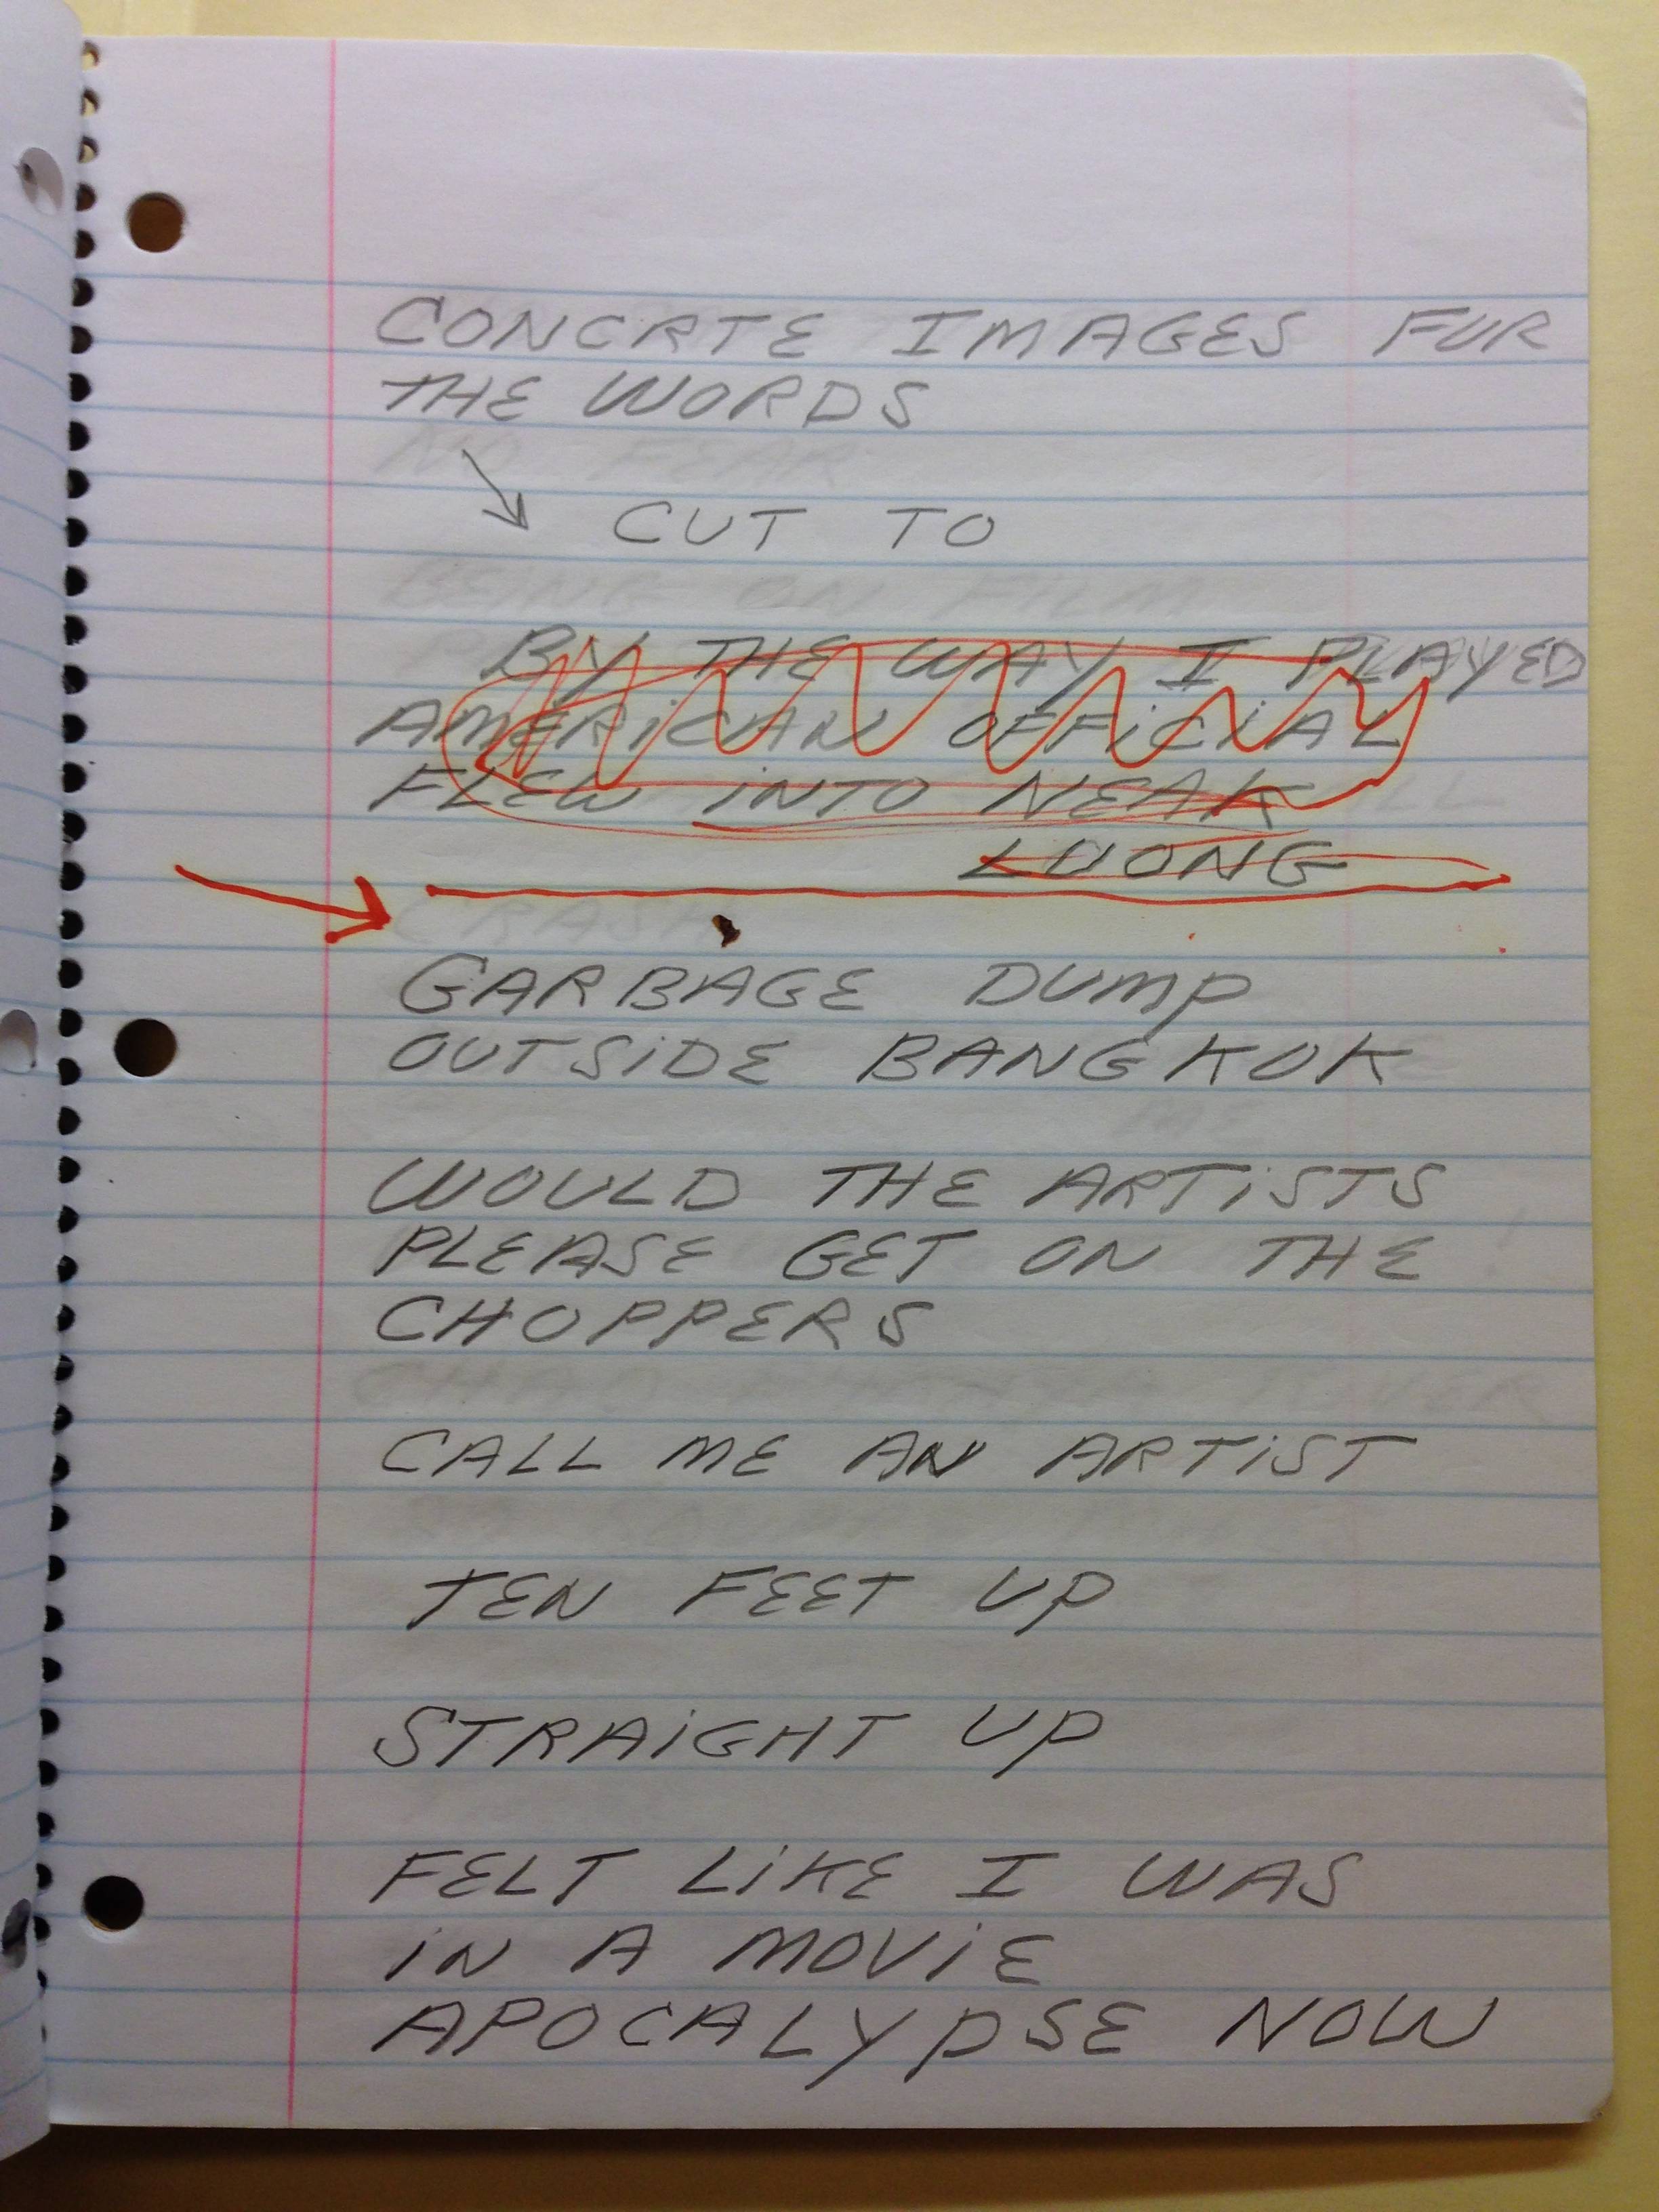 CONCRTE IMAGES FUR
THE WORDS
CUT TO
BY THE WAY I PLAYED
AMERICAN OFFICIAL
FLEW INTO NEAK
LUONG
GARBAGE DUMP
OUTSIDE BANGKOK
WOULD THE ARTISTS
PLEASE GET ON THE
CHOPPERS
CALL ME AN ARTIST
TEN FEET UP
STRAIGHT UP
FELT LIKE I WAS
IN A MOVIE
APOCALYPSE NOW